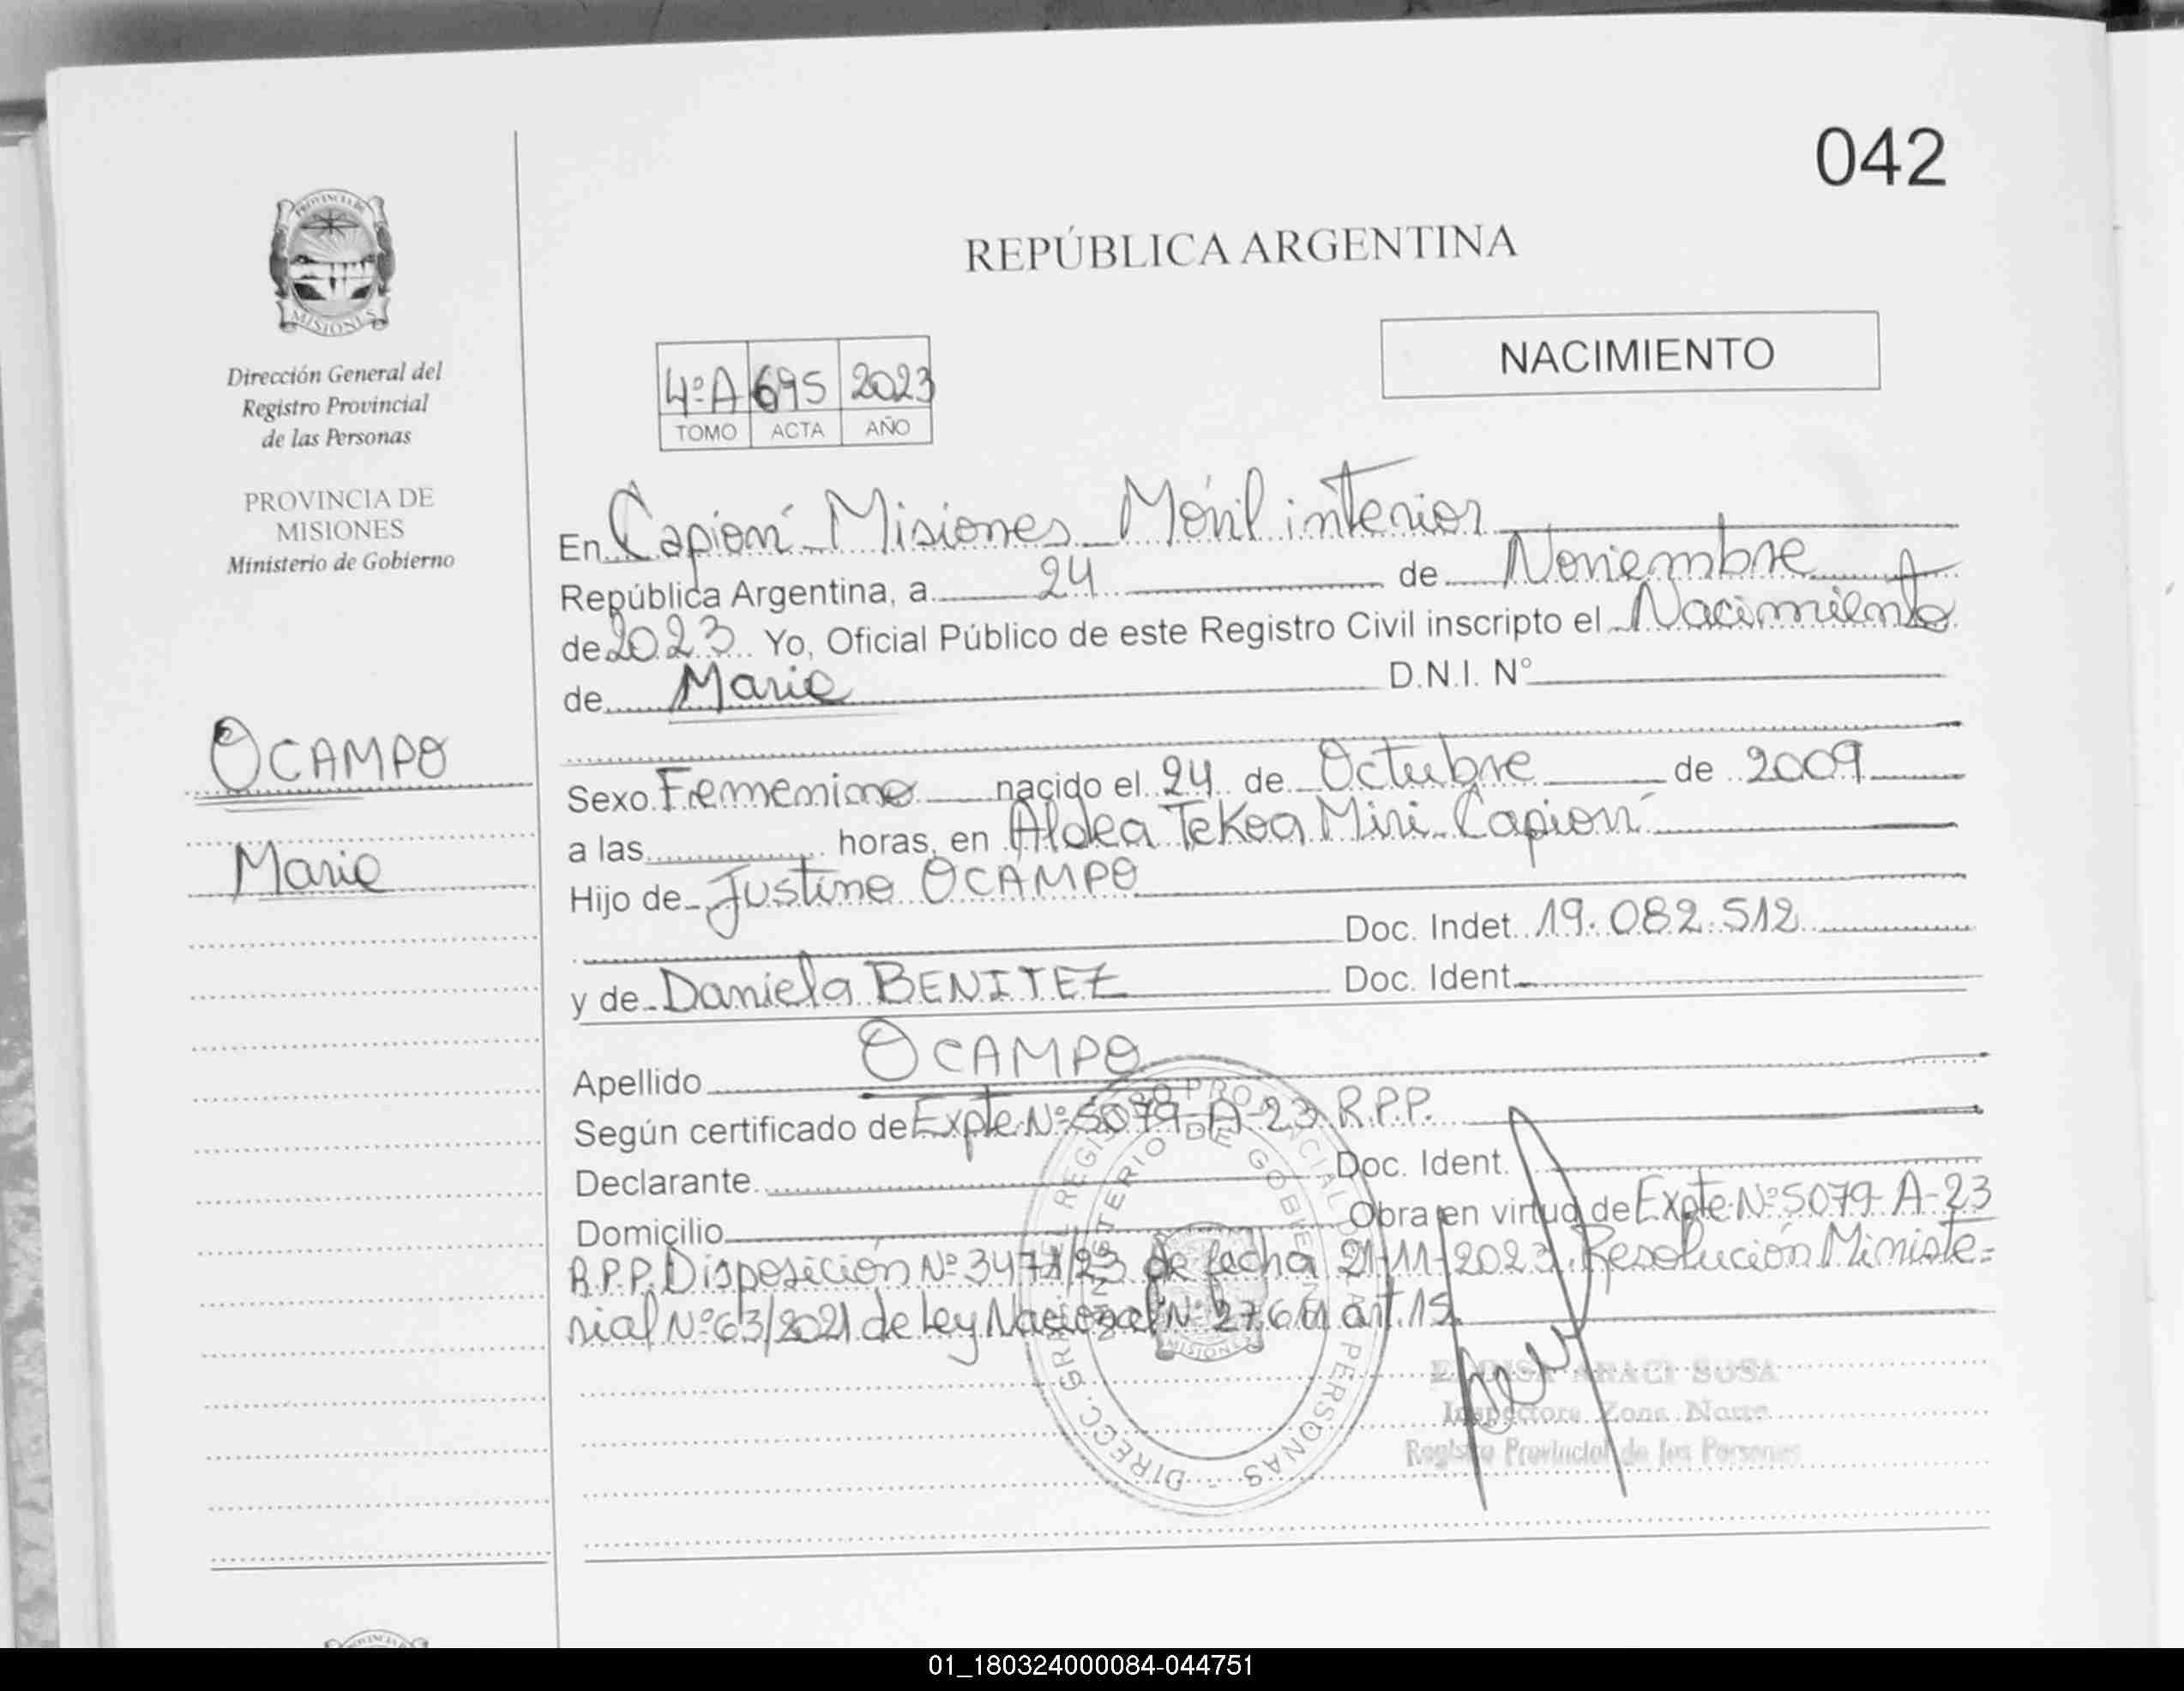 042
PROVINCIA DE
MISIONES
Dirección General del
Registro Provincial
de las Personas
PROVINCIA DE
MISIONES
Ministerio de Gobierno
OCAMPO
Marie
REPÚBLICA ARGENTINA
NACIMIENTO
4º A 695 2023
TOMO ACTA AÑO
En Capioví Misiones Móvil interior
República Argentina, a 24 de Noviembre
de 2023 Yo, Oficial Público de este Registro Civil inscripto el Nacimiento
de Marie D.N.I. Nº
Sexo Femenino nacido el 24 de Octubre de 2009
a las horas, en Aldea Tekoa Miri Capioví
Hijo de Justino OCAMPO
Doc. Indet. 19.082.512
y de Daniela BENITEZ Doc. Ident.
Apellido OCAMPO
Según certificado de Expte Nº 5079-A-23 R.P.P.
Declarante Doc. Ident.
Domicilio Obra en virtud de Expte Nº 5079-A-23
R.P.P. Disposición Nº /23 de fecha 21-11-2023. Resolución Ministe=
rial Nº 63/2021 de Ley Nacional Nº 27.611 art. 15
DIREC. GRAL. REGISTRO PROVINCIAL DE LAS PERSONAS
MINISTERIO DE GOBIERNO
MISIONES
ARACI SUSA
Inspectora Zona Norte
Registro Provincial de las Personas
01_180324000084-044751